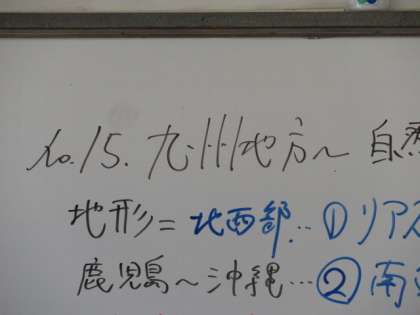 No.15. 九州地方~ 自然
地形= 北西部… ①リアス
鹿児島~沖縄…②南